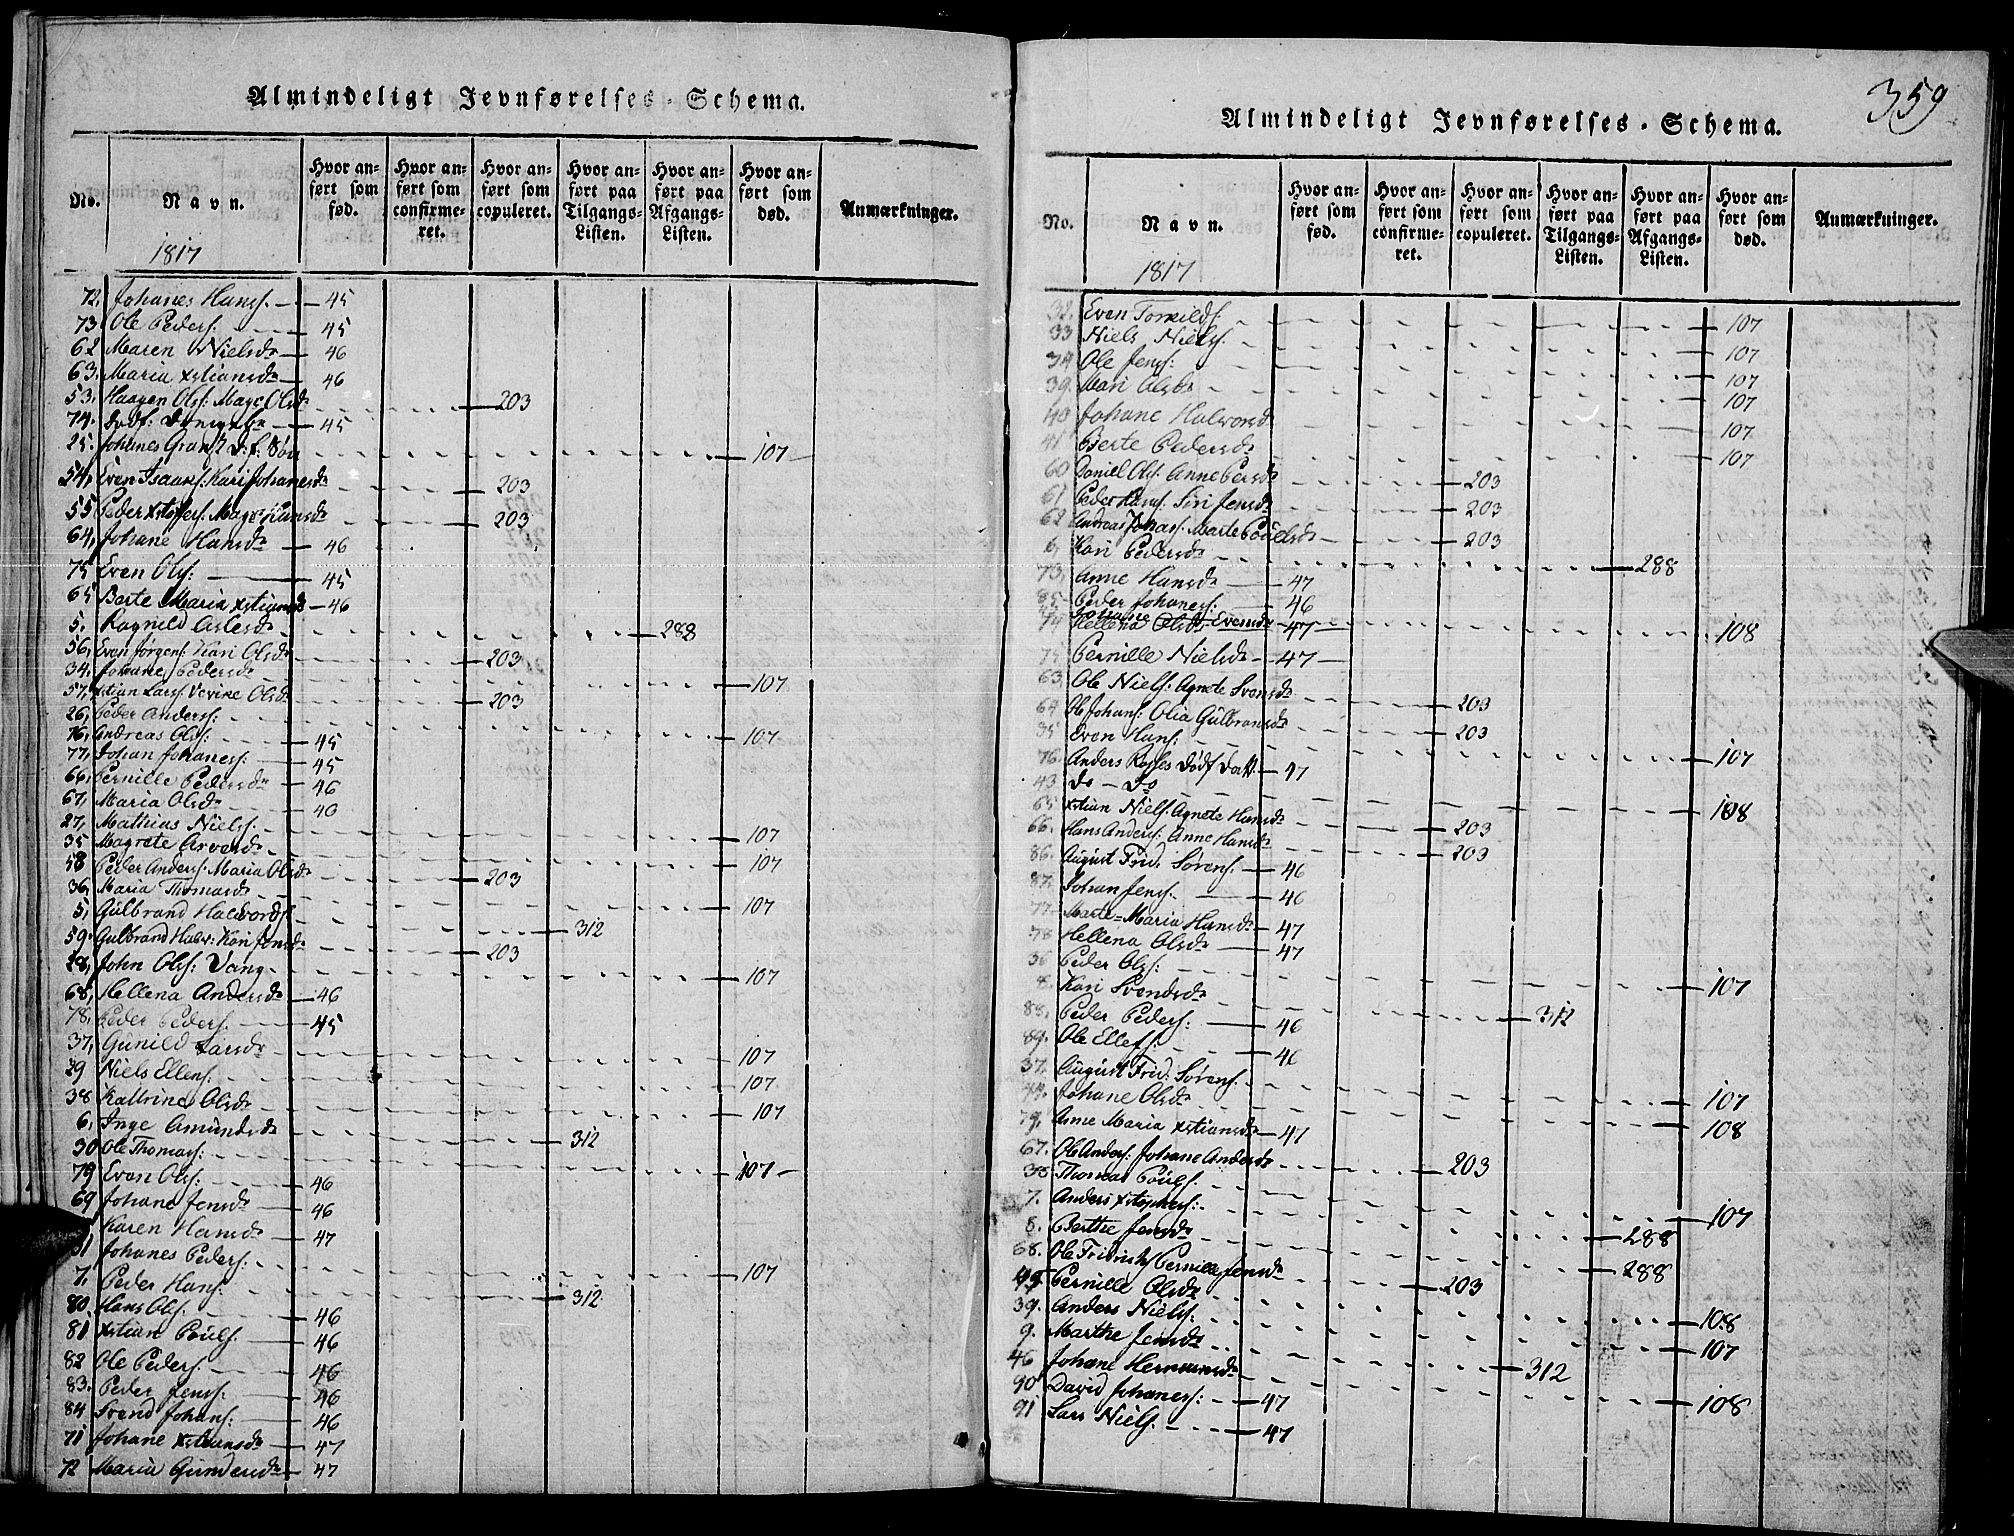 Almindeligt Jevnførelses-Schema.
No. Navn. Hvor anført som fød. Hvor anført som confirmeret. Hvor anført som copuleret. Hvor anført paa Tilgangs-Listen. Hvor anført paa Afgangs-Listen. Hvor anført som død. Anmærkninger.
1817
72, Johanes Hanss. 45
73 Ole Peders: 45
62 Maren Nielsdr 46
63. Maria Xstiansdr 46
53. Haagen Ols: Magr: Olsdr 203
74. Dødf: 45
25. Johanes Grans D.f: Søn 107
54, Even Isaaks: Kari Johanesdr 203
55 Peder Xstofers: Magr: Hansdr 203
64, Johane Hansdr 46
75 Even Ols: 45
65 Berte Maria Xstiansdr 46
5. Ragnild Aslesdr 288
56, Even Jørgens: Kari Olsdr 203
34. Johane Pedersdr 107
57, Xstian Larss. Verike Olsdr 203
26, Peder Anderss: 107
76, Andreas Ols: 45
77, Johan Johaness: 45
66, Pernille Pedersdr 46
67, Maria Olsdr 40
27, Mathias Nielss. 107
35 Magrete Arvesdr 107
58 Peder Anderss. Maria Olsdr 203
36, Maria Thomasdr 107
5, Gülbrand Halvords. 312
59. Gulbrand Halv: Kari Jonsdr 203
28, John Ols: Vang 107
68, Hellena Andersdr 46
78, Peder Peders. 45
37, Gunild Larsdr 107
29 Niels Ellens. 107
38 Kattrine Olsdr 107
6, Inge Amundsdr 312
30 Ole Thomass: 107
79 Even Ols: 46
69 Johane Jensdr 46
Karen Hansdr 47
31 Johanes Peders: 107
7. Peder Hans: 312
80. Hans Ols. 46
81 Xstian Pouls. 46
82 Ole Peders. 46
83. Peder Jenss: 46
84 Svend Johans: 46
71 Johane Xstiansdr 47
72 Maria Gundersdr 47
359
Almindeligt Jevnførelses-Schema.
No. Navn. Hvor anført som fød. Hvor anført som confirmeret. Hvor anført som copuleret. Hvor anført paa Tilgangs-Listen. Hvor anført paa Afgangs-Listen. Hvor anført som død. Anmærkninger.
1817
32. Even Torkilds. 107
33 Niels Niels. 107
34 Ole Jens: 107
39. Mari Olsdr 107
40 Johane Halvorsd 107
41 Berte Pedersdr 107
60 Daniel Ols: Anne Persdr 203
61 Peder Hans. Siri Jensdr 203
62 Andreas Johass: Marte Poulsdr 203
6, Kari Pedersdr 288
73, Anne Hansdr 47
85. Peder Johaness: 46
Johanne Evensdr 108
74 Hellena Olsdr 47
75 Pernille Nielsdr 47
63. Ole Niels: Agnete Svensdr 203
64 Ole Johans: Olia Gülbransdr 203
35 Even Hans: 107
76. Anders Dødf Datt. 47
43 Do - Do 108
65 Xstian Niels. Agnete Hansdr 203
66. Hans Anders: Anne Hansdr 203
86. August Frid. Sørens. 46
87. Johan Jens. 46
77. Marte=Maria Hansdr 47
78 Hellena Olsdr 47
36 Peder Ols: 107
8. Kari Svendsdr 312
88. Peder Peders: 46
89. Ole Ellefs: 46
37. August Frid. Sørens. 107
44. Johane Olsdr 108
79, Anne Maria Xstiansdr 47
67. Ole Anders: Johane Andersdr 203
38 Thomas Pouls. 107
7. Anders Xstophers: 288
8. Berthe Jensdr 288
68. Ole Fridrichs Pernille Jensdr 203
45. Pernille Olsdr 108
39. Anders Niels. 107
9. Marthe Jensdr 312
46 Johane Hermansdr 108
90 David Johaness: 47
91 Lars Niels. 47